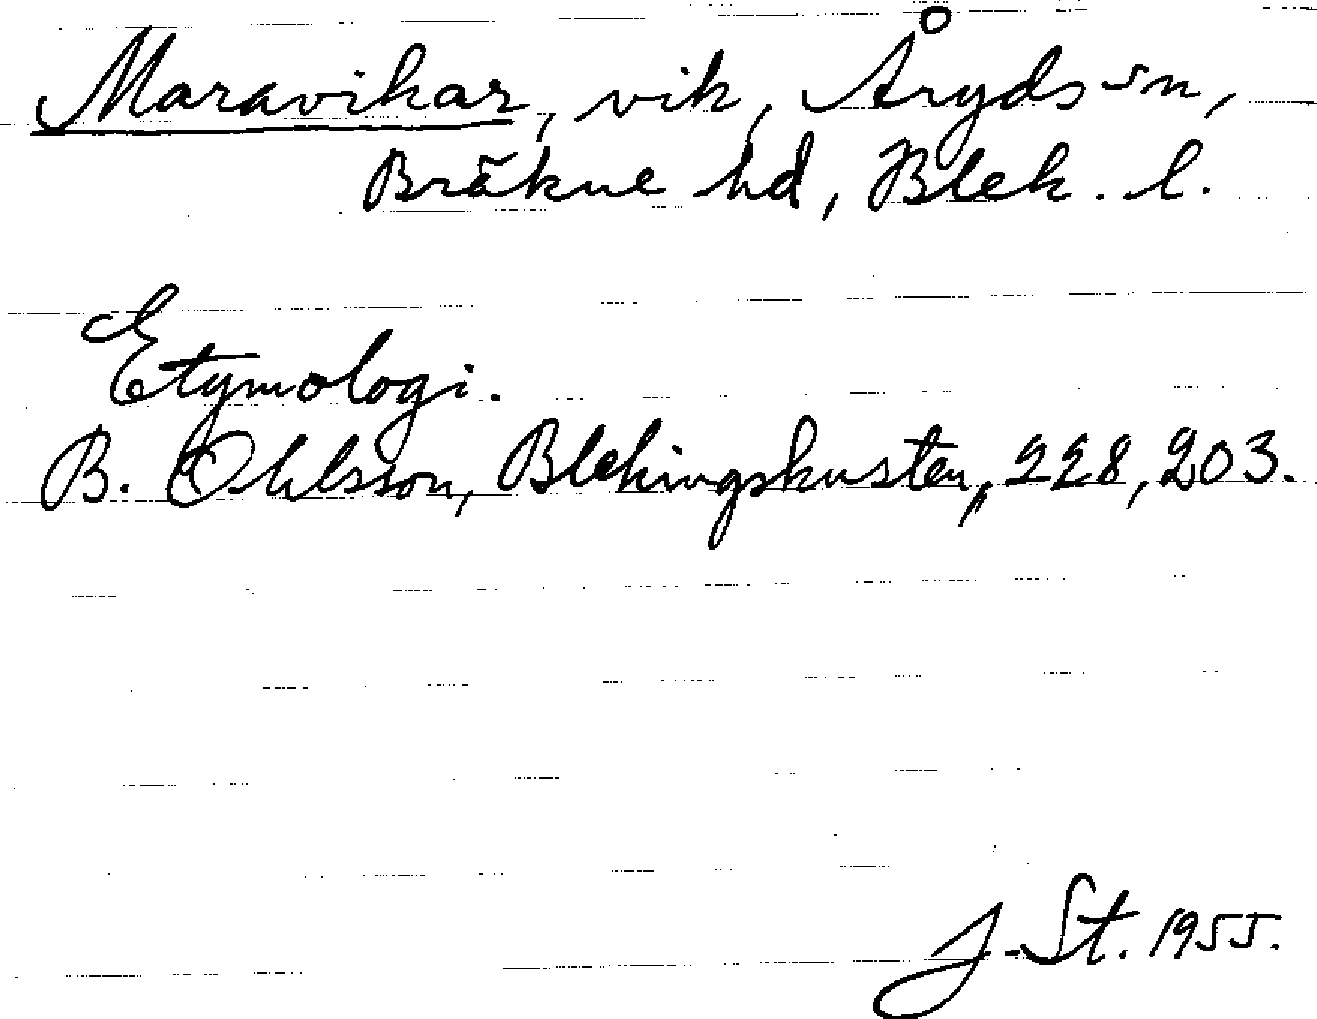 Maravikar, vik, Åryds sn,
Bräkne hd, Blek. l.
Etymologi.
B. Ohlsson, Blekingskusten, 228, 203.
J. St. 1955.